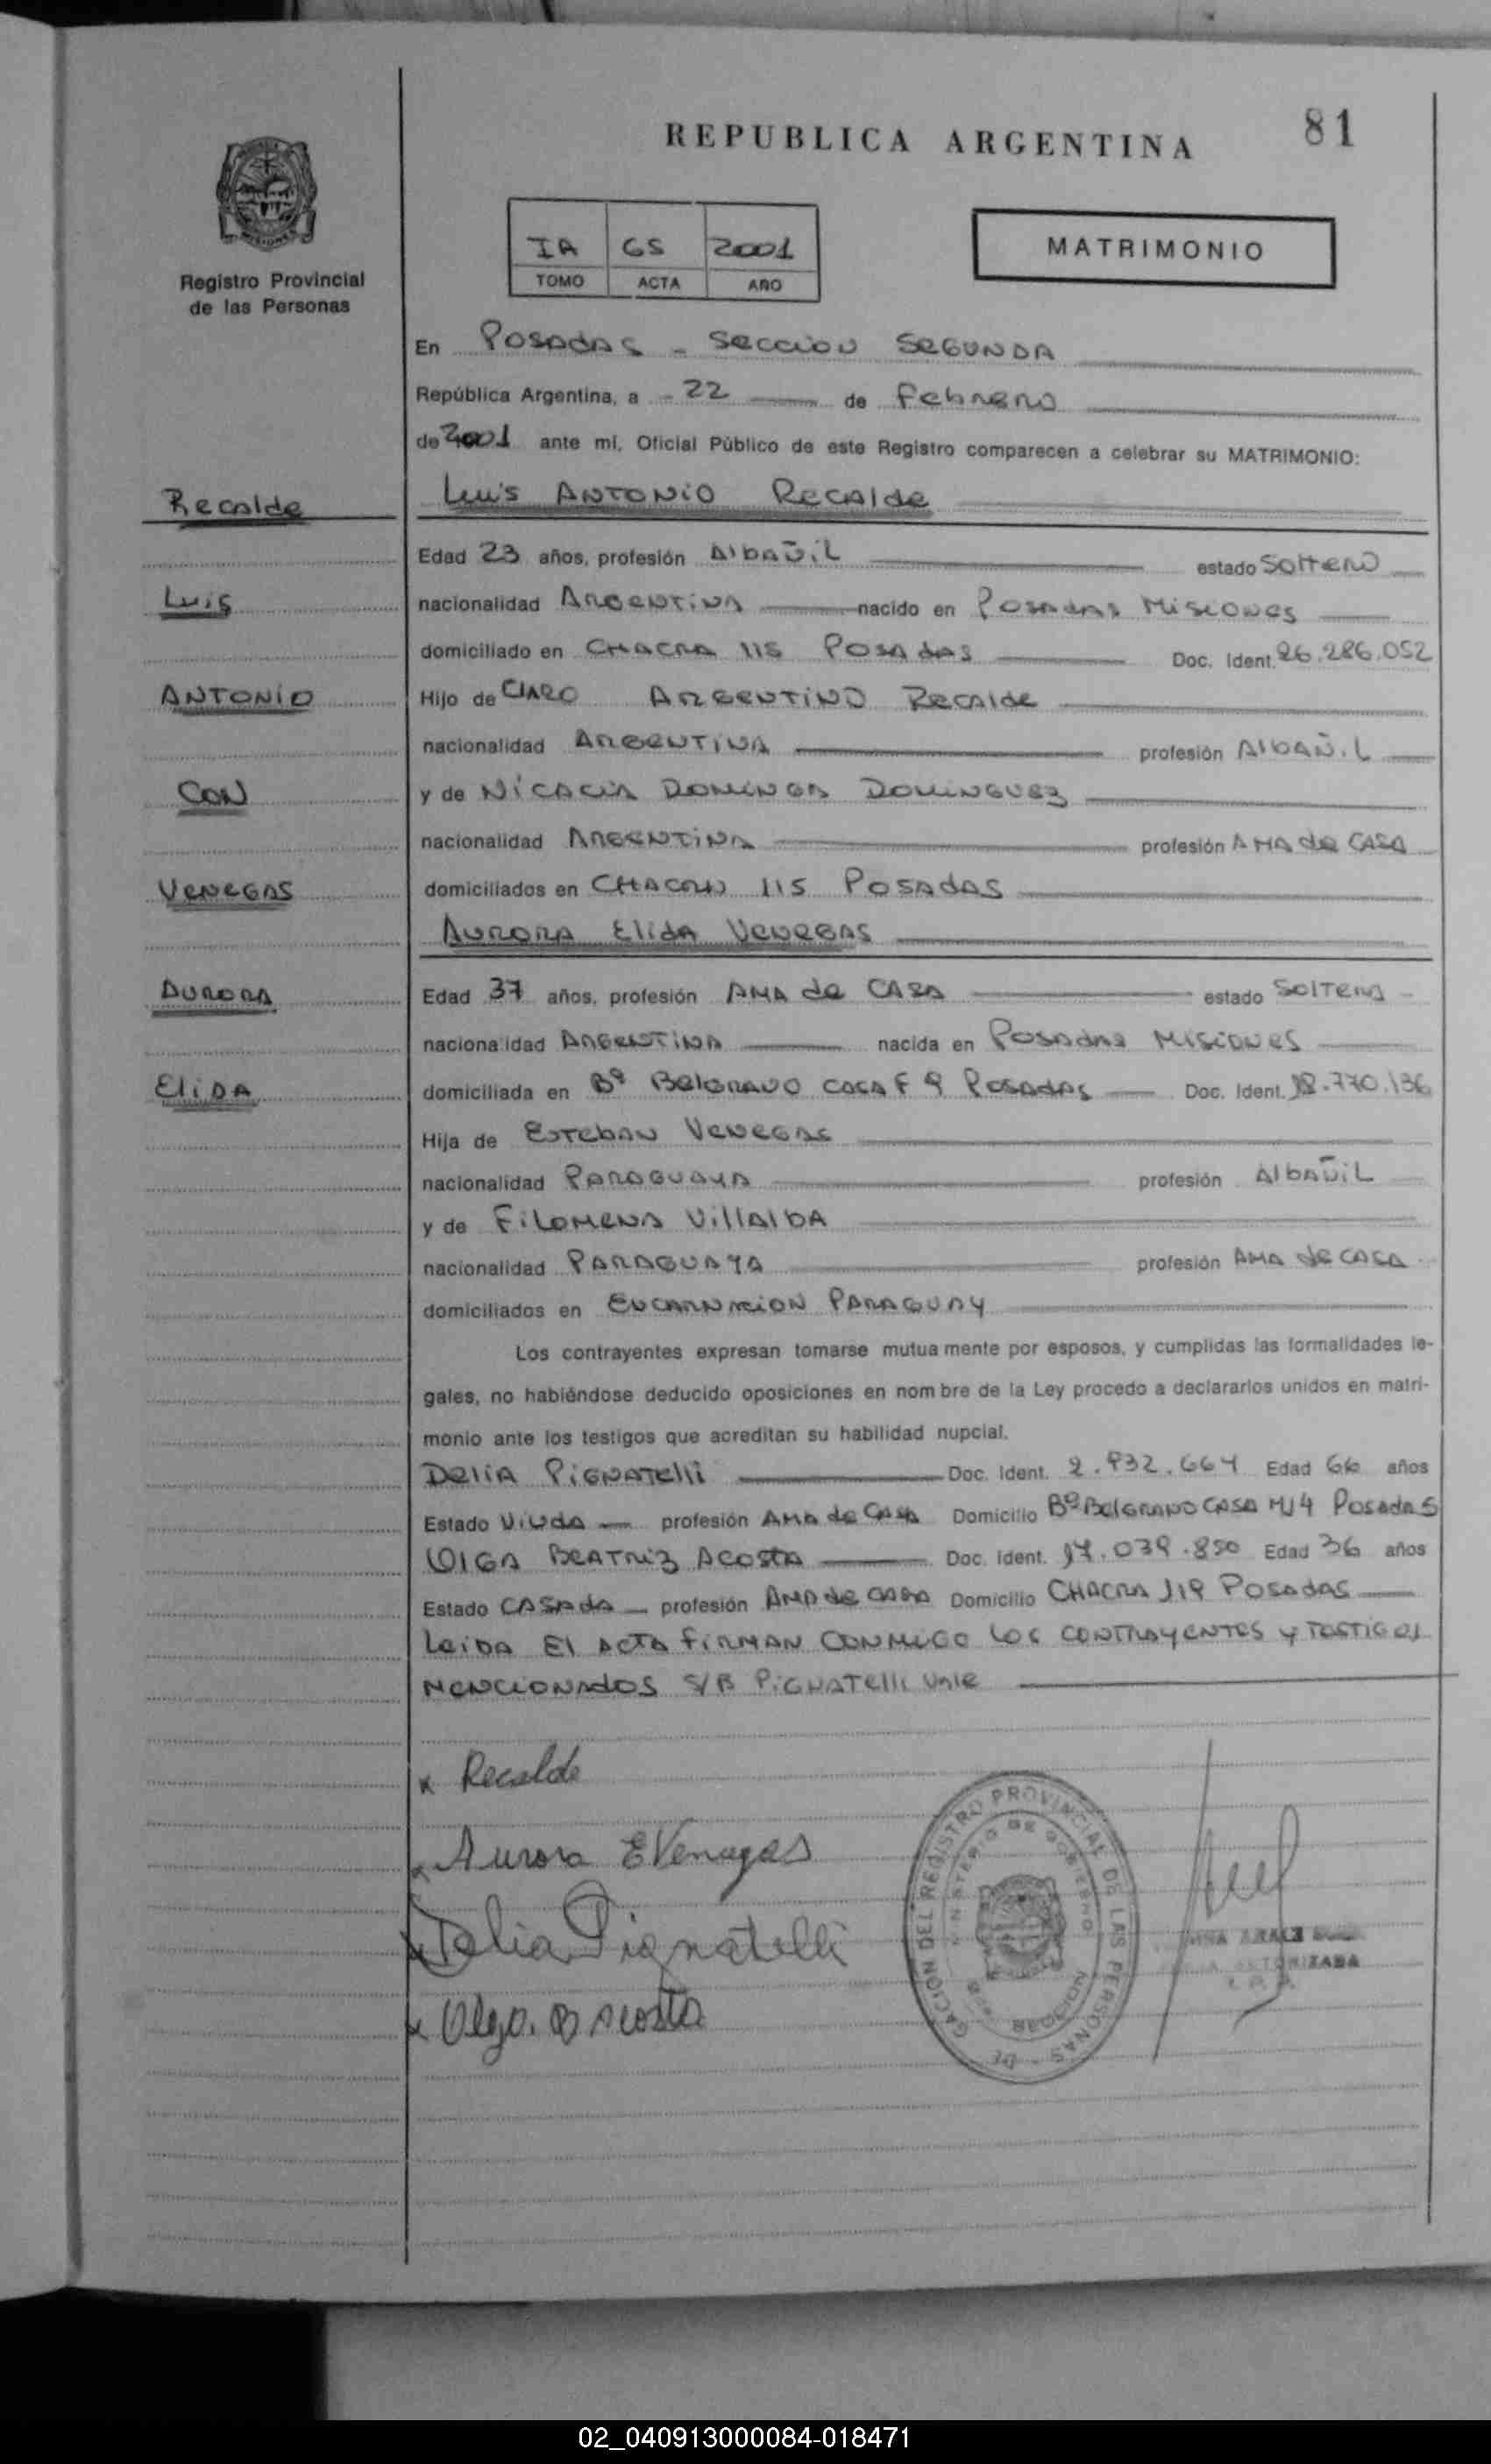 REPUBLICA ARGENTINA
81
Registro Provincial
de las Personas
IA 65 2001
TOMO ACTA AÑO
MATRIMONIO
En Posadas - Seccion Segunda
República Argentina, a - 22 de Febrero
de 2001 ante mí, Oficial Público de este Registro comparecen a celebrar su MATRIMONIO:
Recalde
Luis Antonio Recalde
Edad 23 años, profesión Albañil estado Soltero
Luis
nacionalidad Argentina nacido en Posadas Misiones
domiciliado en Chacra 115 Posadas Doc. Ident. 26.286.052
Antonio
Hijo de Claro Argentino Recalde
nacionalidad Argentina profesión Albañil
Con
y de Nicacia Dominga Dominguez
nacionalidad Argentina profesión Ama de Casa
Venegas
domiciliados en Chacra 115 Posadas
Aurora Elida Venegas
Aurora
Edad 37 años, profesión Ama de Casa estado Soltera
nacionalidad Argentina nacida en Posadas Misiones
Elida
domiciliada en Bº Belgrano casa F 9 Posadas Doc. Ident. 18.770.136
Hija de Esteban Venegas
nacionalidad Paraguaya profesión Albañil
y de Filomena Villalba
nacionalidad Paraguaya profesión Ama de Casa
domiciliados en Encarnacion Paraguay
Los contrayentes expresan tomarse mutua mente por esposos, y cumplidas las formalidades le-
gales, no habiéndose deducido oposiciones en nom bre de la Ley procedo a declararlos unidos en matri-
monio ante los testigos que acreditan su habilidad nupcial.
Delia Pignatelli Doc. Ident. 2.932.664 Edad 66 años
Estado Viuda profesión Ama de Casa Domicilio Bº Belgrano Casa M14 Posadas
Olga Beatriz Acosta Doc. Ident. 17.039.850 Edad 36 años
Estado Casada profesión Ama de Casa Domicilio Chacra 119 Posadas
Leida el acta firman conmigo los contrayentes y testigos
mencionados S/B Pignatelli Vale
x Recalde
x Aurora E Venegas
x Delia Pignatelli
x Olga. B Acosta
DEL REGISTRO PROVINCIAL DE LAS PERSONAS
MINISTERIO DE GOBIERNO
AUTORIZADA
02_040913000084-018471